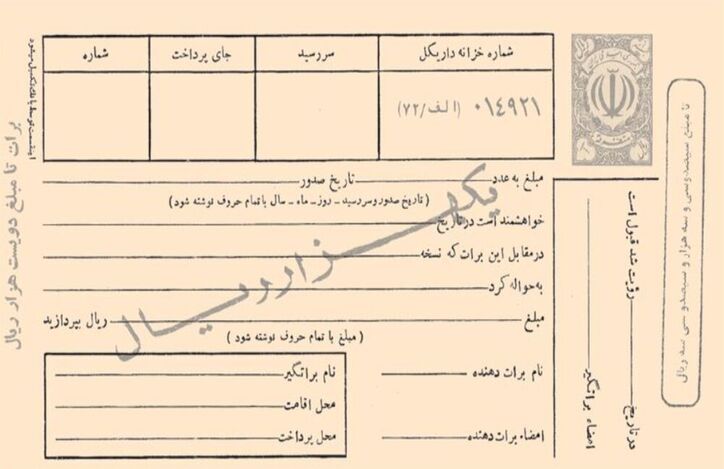 شماره خزانه داریکل
سررسید
جای پرداخت
شماره
۰۱۴۹۲۱ (الف/۷۲)
مبلغ به عدد تاریخ صدور
(تاریخ صدور و سررسید - روز - ماه - سال با تمام حروف نوشته شود)
خواهشمند است در تاریخ
در مقابل این برات که نسخه
به حواله کرد
مبلغ ریال بپردازید
(مبلغ با تمام حروف نوشته شود)
یکهزار ریال
نام برات دهنده
امضاء برات دهنده
نام براتگیر
محل اقامت
محل پرداخت
رؤیت شد قبول است
در تاریخ
امضاء براتگیر
تا مبلغ سیصدوسی و سه هزار و سیصدو سی سه ریال
برات تا مبلغ دویست هزار ریال
اینقسمت توسط بانک تکمیل میشود